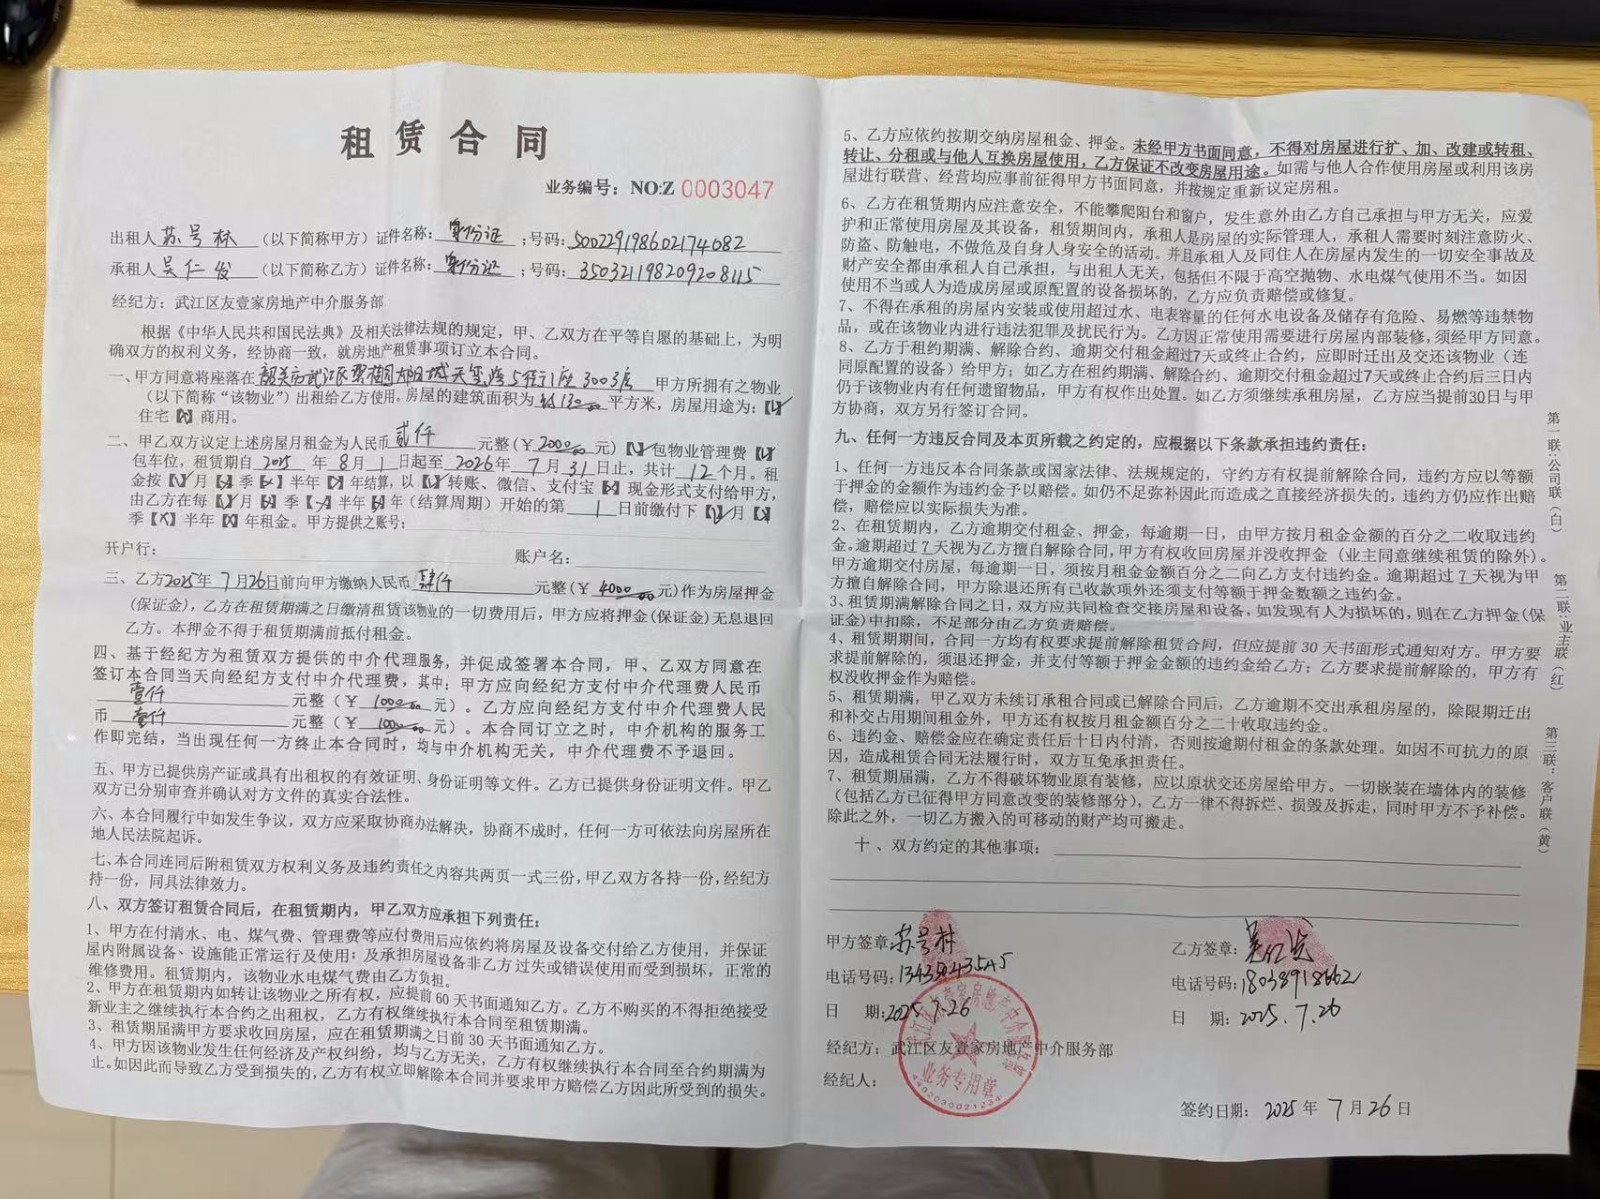 租赁合同
业务编号：NO:Z 0003047
出租人苏号林（以下简称甲方）证件名称：身份证；号码：500229198602174082
承租人吴仁发（以下简称乙方）证件名称：身份证；号码：350321198209208115
经纪方：武江区友壹家房地产中介服务部
根据《中华人民共和国民法典》及相关法律法规的规定，甲、乙双方在平等自愿的基础上，为明
确双方的权利义务，经协商一致，就房地产租赁事项订立本合同。
一、甲方同意将座落在韶关市武江区碧桂园太阳城天玺湾5街1座3003房 甲方所拥有之物业
（以下简称“该物业”）出租给乙方使用。房屋的建筑面积为 130.00 平方米，房屋用途为：【✓】
住宅【×】商用。
二、甲乙双方议定上述房屋月租金为人民币 贰仟 元整（￥2000.00元）【✓】包物业管理费【✓】
包车位，租赁期自2025年8月1日起至2026年7月31日止，共计12个月。租
金按【✓】月【×】季【×】半年【×】年结算，以【✓】转账、微信、支付宝【×】现金形式支付给甲方，
由乙方在每【✓】月【×】季【×】半年【×】年（结算周期）开始的第 1 日前缴付下【✓】月【×】
季【×】半年【×】年租金。甲方提供之账号：
开户行： 账户名：
三、乙方2025年7月26日前向甲方缴纳人民币 肆仟 元整（￥4000.00元）作为房屋押金
(保证金)，乙方在租赁期满之日缴清租赁该物业的一切费用后，甲方应将押金(保证金)无息退回
乙方。本押金不得于租赁期满前抵付租金。
四、基于经纪方为租赁双方提供的中介代理服务，并促成签署本合同，甲、乙双方同意在
签订本合同当天向经纪方支付中介代理费，其中：甲方应向经纪方支付中介代理费人民币
壹仟 元整（￥1000.00元）。乙方应向经纪方支付中介代理费人民
币 壹仟 元整（￥1000.00元）。本合同订立之时，中介机构的服务工
作即完结，当出现任何一方终止本合同时，均与中介机构无关，中介代理费不予退回。
五、甲方已提供房产证或具有出租权的有效证明、身份证明等文件。乙方已提供身份证明文件。甲乙
双方已分别审查并确认对方文件的真实合法性。
六、本合同履行中如发生争议，双方应采取协商办法解决，协商不成时，任何一方可依法向房屋所在
地人民法院起诉。
七、本合同连同后附租赁双方权利义务及违约责任之内容共两页一式三份，甲乙双方各持一份，经纪方
持一份，同具法律效力。
八、双方签订租赁合同后，在租赁期内，甲乙双方应承担下列责任：
1、甲方在付清水、电、煤气费、管理费等应付费用后应依约将房屋及设备交付给乙方使用，并保证
屋内附属设备、设施能正常运行及使用；及承担房屋设备非乙方过失或错误使用而受到损坏，正常的
维修费用。租赁期内，该物业水电煤气费由乙方负担。
2、甲方在租赁期内如转让该物业之所有权，应提前60天书面通知乙方。乙方不购买的不得拒绝接受
新业主之继续执行本合约之出租权，乙方有权继续执行本合同至租赁期满。
3、租赁期届满甲方要求收回房屋，应在租赁期满之日前30天书面通知乙方。
4、甲方因该物业发生任何经济及产权纠纷，均与乙方无关，乙方有权继续执行本合同至合约期满为
止。如因此而导致乙方受到损失的，乙方有权立即解除本合同并要求甲方赔偿乙方因此所受到的损失。
5、乙方应依约按期交纳房屋租金、押金。未经甲方书面同意，不得对房屋进行扩、加、改建或转租、
转让、分租或与他人互换房屋使用，乙方保证不改变房屋用途。如需与他人合作使用房屋或利用该房
屋进行联营、经营均应事前征得甲方书面同意，并按规定重新议定房租。
6、乙方在租赁期内应注意安全，不能攀爬阳台和窗户，发生意外由乙方自己承担与甲方无关，应爱
护和正常使用房屋及其设备，租赁期间内，承租人是房屋的实际管理人，承租人需要时刻注意防火、
防盗、防触电，不做危及自身人身安全的活动。并且承租人及同住人在房屋内发生的一切安全事故及
财产安全都由承租人自己承担，与出租人无关，包括但不限于高空抛物、水电煤气使用不当。如因
使用不当或人为造成房屋或原配置的设备损坏的，乙方应负责赔偿或修复。
7、不得在承租的房屋内安装或使用超过水、电表容量的任何水电设备及储存有危险、易燃等违禁物
品，或在该物业内进行违法犯罪及扰民行为。乙方因正常使用需要进行房屋内部装修，须经甲方同意。
8、乙方于租约期满、解除合约、逾期交付租金超过7天或终止合约，应即时迁出及交还该物业（连
同原配置的设备）给甲方；如乙方在租约期满、解除合约、逾期交付租金超过7天或终止合约后三日内
仍于该物业内有任何遗留物品，甲方有权作出处置。如乙方须继续承租房屋，乙方应当提前30日与甲
方协商，双方另行签订合同。
九、任何一方违反合同及本页所载之约定的，应根据以下条款承担违约责任：
1、任何一方违反本合同条款或国家法律、法规规定的，守约方有权提前解除合同，违约方应以等额
于押金的金额作为违约金予以赔偿。如仍不足弥补因此而造成之直接经济损失的，违约方仍应作出赔
偿，赔偿应以实际损失为准。
2、在租赁期内，乙方逾期交付租金、押金，每逾期一日，由甲方按月租金金额的百分之二收取违约
金。逾期超过7天视为乙方擅自解除合同，甲方有权收回房屋并没收押金（业主同意继续租赁的除外）。
甲方逾期交付房屋，每逾期一日，须按月租金金额百分之二向乙方支付违约金。逾期超过7天视为甲
方擅自解除合同，甲方除退还所有已收款项外还须支付等额于押金数额之违约金。
3、租赁期满解除合同之日，双方应共同检查交接房屋和设备，如发现有人为损坏的，则在乙方押金(保
证金)中扣除，不足部分由乙方负责赔偿。
4、租赁期期间，合同一方均有权要求提前解除租赁合同，但应提前30天书面形式通知对方。甲方要
求提前解除的，须退还押金，并支付等额于押金金额的违约金给乙方；乙方要求提前解除的，甲方有
权没收押金作为赔偿。
5、租赁期满，甲乙双方未续订承租合同或已解除合同后，乙方逾期不交出承租房屋的，除限期迁出
和补交占用期间租金外，甲方还有权按月租金额百分之二十收取违约金。
6、违约金、赔偿金应在确定责任后十日内付清，否则按逾期付租金的条款处理。如因不可抗力的原
因，造成租赁合同无法履行时，双方互免承担责任。
7、租赁期届满，乙方不得破坏物业原有装修，应以原状交还房屋给甲方。一切嵌装在墙体内的装修
（包括乙方已征得甲方同意改变的装修部分），乙方一律不得拆烂、损毁及拆走，同时甲方不予补偿。
除此之外，一切乙方搬入的可移动的财产均可搬走。
十、双方约定的其他事项：
甲方签章：苏号林
电话号码：13435043545
日 期：2025.7.26
经纪方：武江区友壹家房地产中介服务部
经纪人：
业务专用章
乙方签章：吴仁发
电话号码：18038918662
日 期：2025.7.26
签约日期：2025年7月26日
第一联：公司联（白）
第二联：业主联（红）
第三联：客户联（黄）